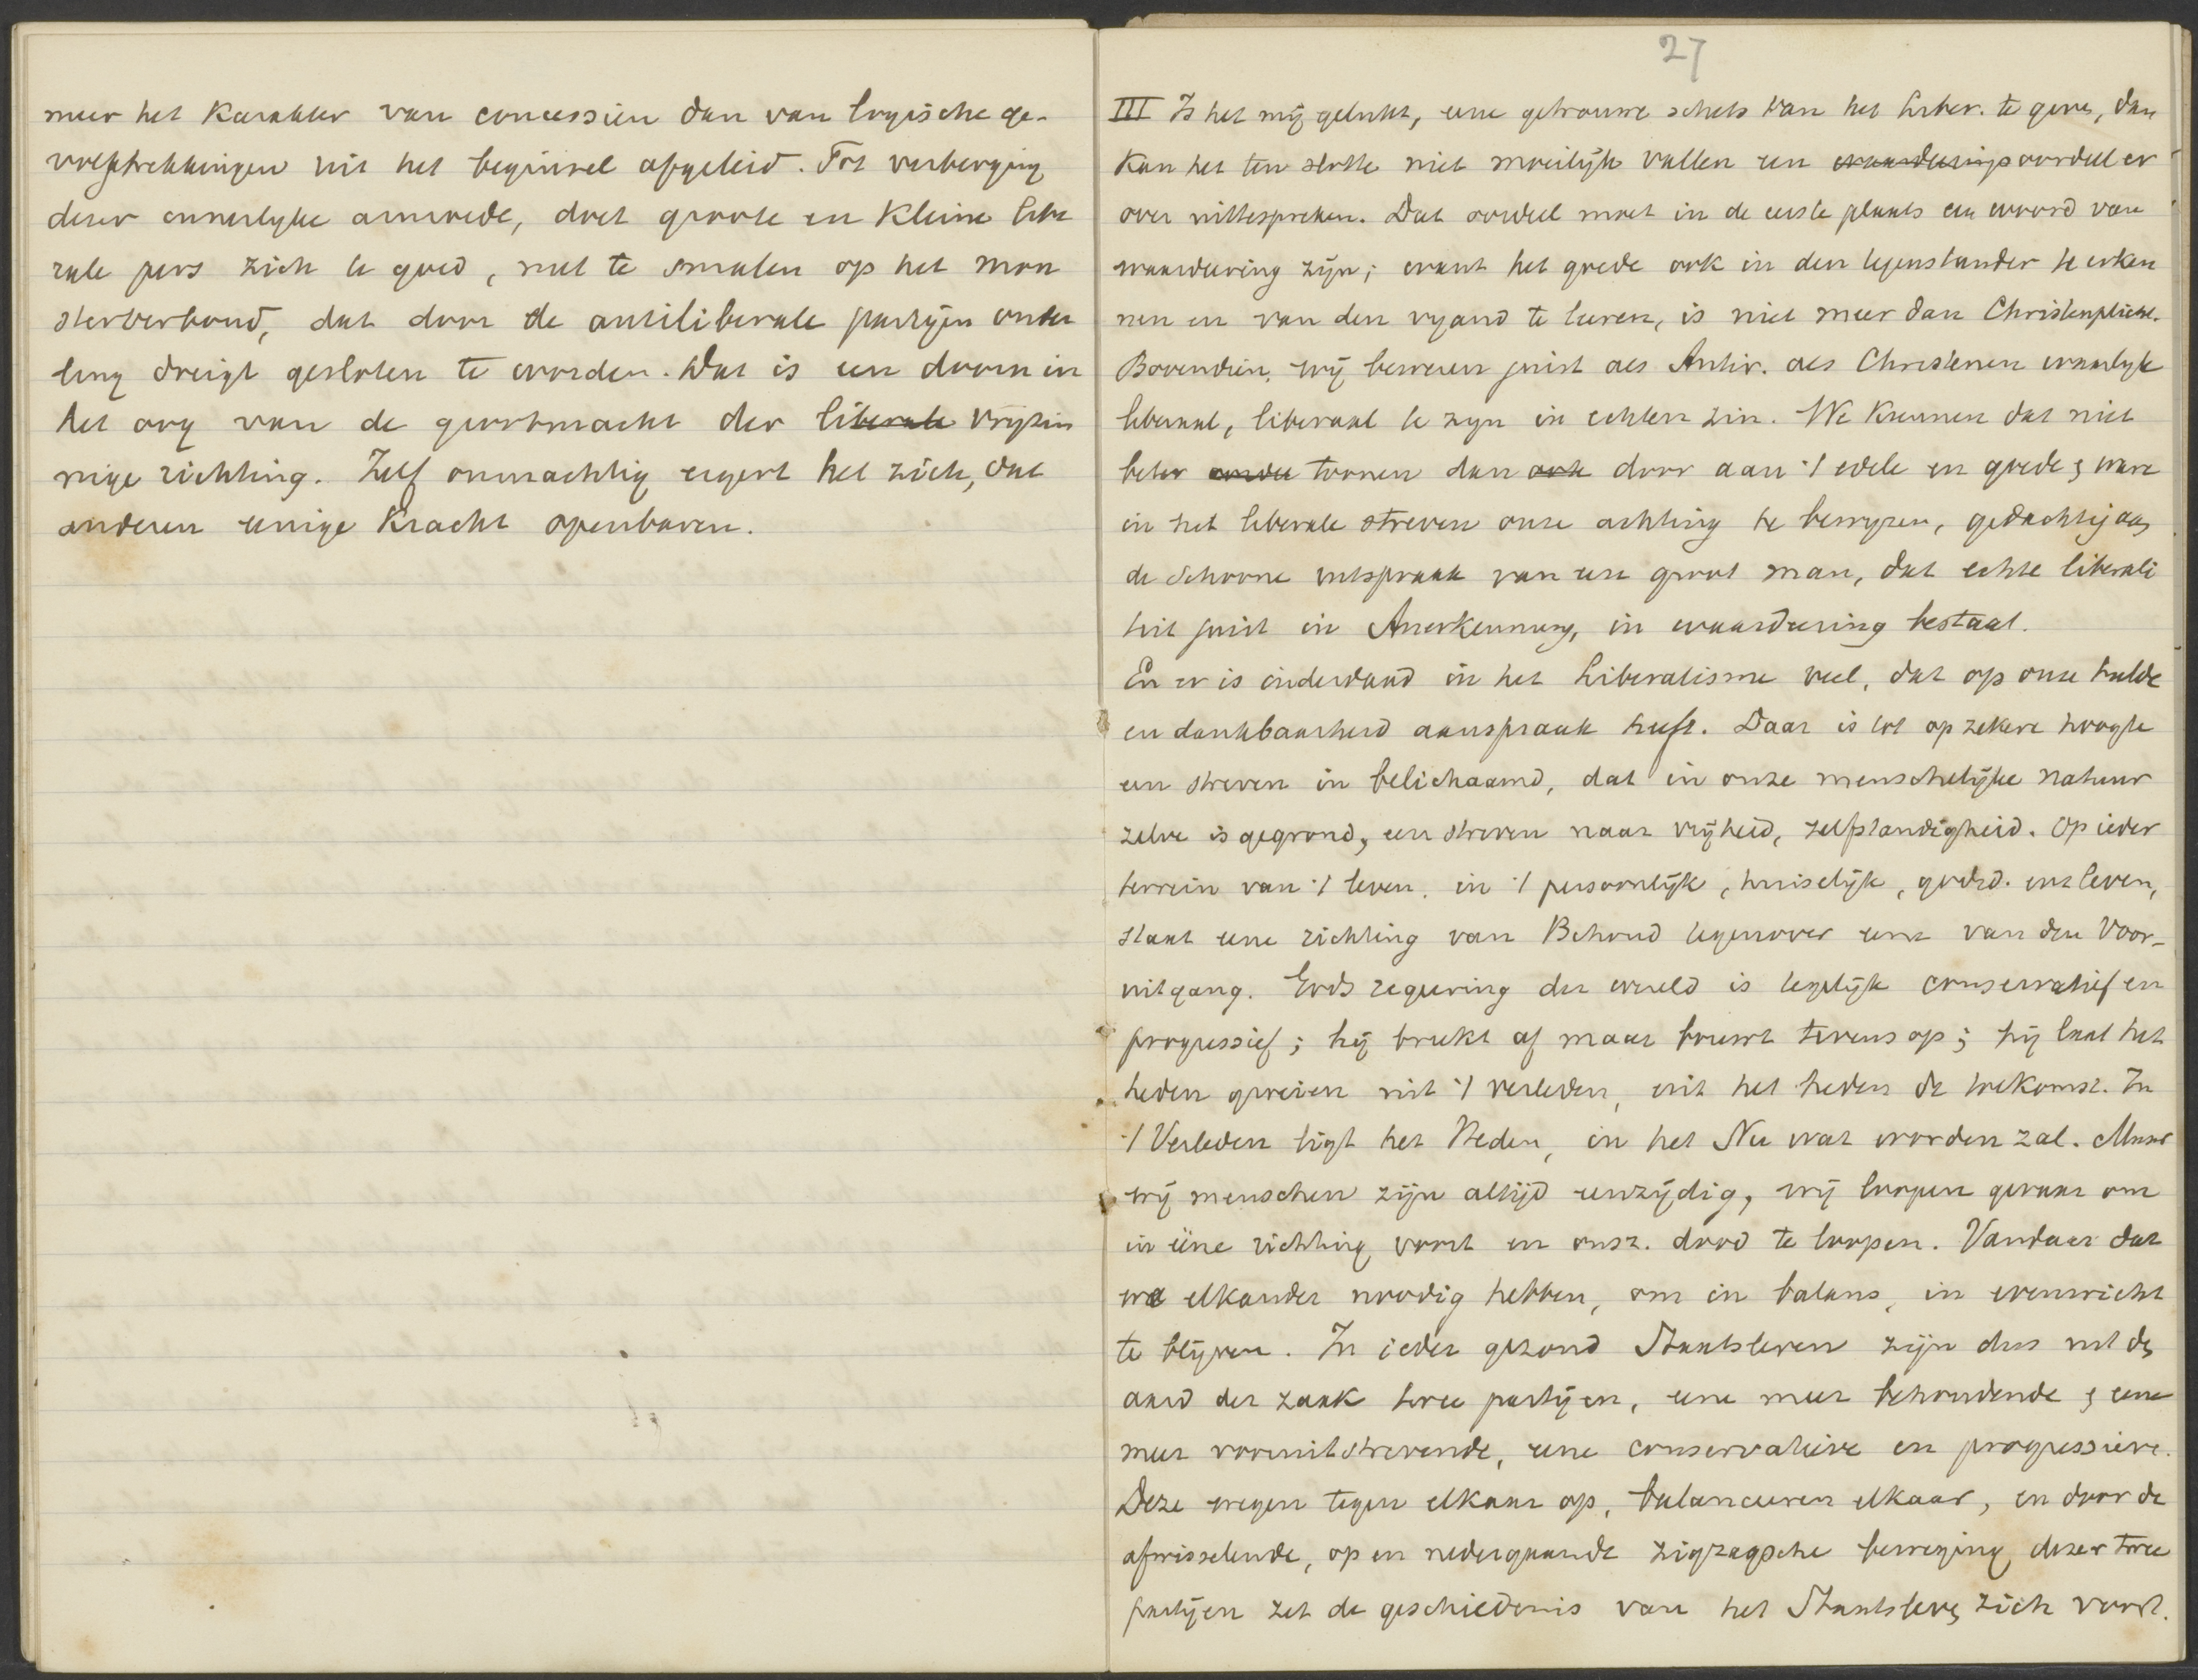 meer het karakter van concessien dan van logische ge-
volgtrekkingen uit het beginsel afgeleid. Tot verberging
dezer innerlyke armoede, doet groote en kleine libe
rale pers zich te goed, met te smalen op het mon
sterverbond, dat door de antiliberale partijen onder
ling dreigt gesloten te worden. Dat is een doorn in
het oog van de grootmacht der liberale vrijzin
nige richting. Zelf onmachtig ergert het zich, dat
anderen eenige kracht openbaren.
27
III Is het mij gelukt, eene getrouwe schets van het Liber. te geven, dan
kan het ten slotte niet moeilijk vallen een waardeeringsoordeel er
over uittespreken. Dat oordeel moet in de eerste plaats een woord van
waardeering zijn; want het goede ook in den tegenstander te erken
nen en van den vyand te leeren, is niet meer dan Christenplicht.
Bovendien, wij beweren juist als Antir. als Christenen waarlyk
liberaal, liberaal te zyn in echten zin. We kunnen dat niet
beter toonen dan ook door aan 't edele en goede & ware
in het liberale streven onze achting te bewyzen, gedachtig aan
de schoone uitspraak van een groot man, dat echte liberali
teit juist in Anerkennung, in waardeering bestaat.
En er is inderdaad in het Liberalisme veel, dat op onze hulde
en dankbaarheid aanspraak heeft. Daar is tot op zekere hoogte
een streven in belichaamd, dat in onze menschelijke natuur
zelve is gegrond, een streven naar vrijheid, zelfstandigheid. Op ieder
terrein van 't leven, in 't persoonlijk, huiselijk, godsd. enz leven,
staat eene richting van Behoud tegenover eene van den Voor-
uitgang. Gods regeering der wereld is tegelijk conservatief en
progressief; hij breekt af maar bouwt tevens op; hij laat het
heden groeien uit 't verleden, uit het heden de toekomst. In
't Verleden ligt het Heden, in het Nu wat worden zal. Maar
wij menschen zijn altijd eenzijdig, wij loopen gevaar om
in ééne richting voort en onsz. dood te loopen. Vandaar dat
we elkander noodig hebben, om in balans, in evenwicht
te blijven. In ieder gezond Staatsleven zijn dus uit den
aard der zaak twee partijen, eene meer behoudende & eene
meer vooruitstrevende, eene conservatieve en progressieve.
Deze wegen tegen elkaar op, balanceeren elkaar, en door de
afwisselende, op en nedergaande zigzagsche beweging dezer twee
partijen zet de geschiedenis van het Staatsleven zich voort.